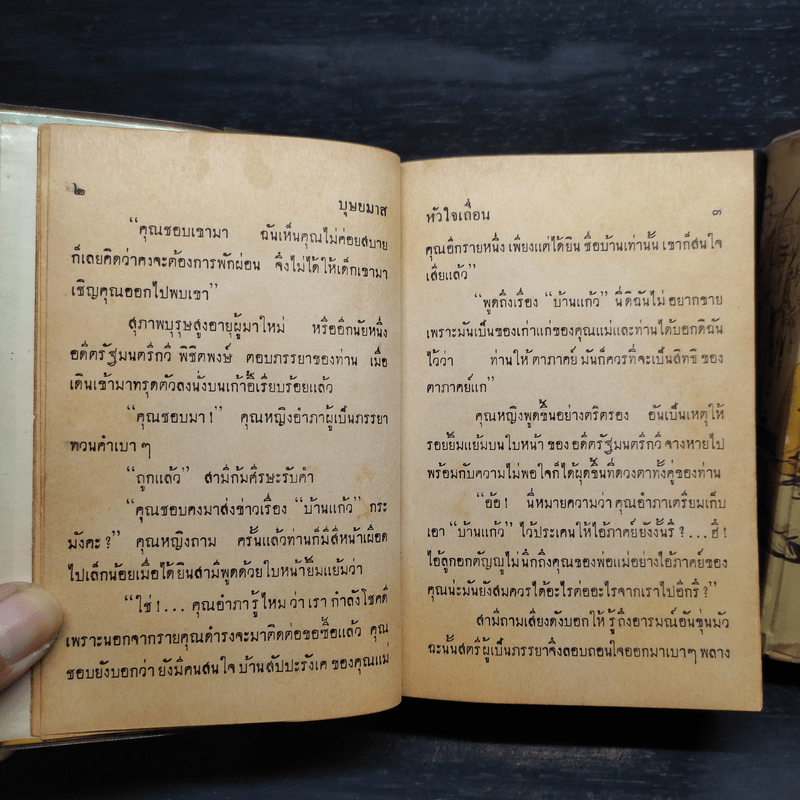 ๒
บุษยมาส
“คุณชอบเขามา ฉันเห็นคุณไม่ค่อยสบาย
ก็เลยคิดว่าคงจะต้องการพักผ่อน จึงไม่ได้ให้เด็กเขามา
เชิญคุณออกไปพบเขา”
สุภาพบุรุษสูงอายุผู้มาใหม่ หรืออีกนัยหนึ่ง
อดีตรัฐมนตรีกวี พิชิตพงษ์ ตอบภรรยาของท่าน เมื่อ
เดินเข้ามาทรุดตัวลงนั่งบนเก้าอี้เรียบร้อยแล้ว
“คุณชอบมา !” คุณหญิงอำภาผู้เป็นภรรยา
ทวนคำเบา ๆ
“ถูกแล้ว” สามีก้มศีรษะรับคำ
“คุณชอบคงมาส่งข่าวเรื่อง “บ้านแก้ว” กระ
มังคะ ?” คุณหญิงถาม ครั้นแล้วท่านก็มีสีหน้าเผือด
ไปเล็กน้อยเมื่อได้ยินสามีพูดด้วยใบหน้ายิ้มแย้มว่า
“ใช่ !... คุณอำภารู้ไหมว่า เรากำลังโชคดี
เพราะนอกจากรายคุณดำรงจะมาติดต่อขอซื้อแล้ว คุณ
ชอบยังบอกว่า ยังมีคนสนใจ บ้านสัปปะรังเค ของคุณแม่
หัวใจเถื่อน
๓
คุณอีกรายหนึ่ง เพียงแต่ได้ยิน ชื่อบ้านเท่านั้น เขาก็สนใจ
เสียแล้ว”
“พูดถึงเรื่อง “บ้านแก้ว” นี่ดิฉันไม่อยากขาย
เพราะมันเป็นของเก่าแก่ของคุณแม่และท่านได้บอกดิฉัน
ไว้ว่า ท่านให้ตาภาคย์ มันก็ควรที่จะเป็นสิทธิ ของ
ตาภาคย์แก”
คุณหญิงพูดขึ้นอย่างตริตรอง อันเป็นเหตุให้
รอยยิ้มแย้มบนใบหน้า ของ อดีตรัฐมนตรีกวี จางหายไป
พร้อมกับความไม่พอใจก็ได้ผุดขึ้นที่ดวงตาทั้งคู่ของท่าน
“อ้อ ! นี่หมายความว่า คุณอำภาเตรียมเก็บ
เอา “บ้านแก้ว” ไว้ประเคนให้ไอ้ภาคย์ยังงั้นรึ ? ... ฮึ !
ไอ้ลูกอกตัญญูไม่นึกถึงคุณของพ่อแม่อย่างไอ้ภาคย์ของ
คุณน่ะมันยังสมควรได้อะไรต่ออะไรจากเราไปอีกรึ ?”
สามีถามเสียงดังบอกให้รู้ถึงอารมณ์อันขุ่นมัว
ฉะนั้นสตรีผู้เป็นภรรยาจึงลอบถอนใจออกมาเบาๆ พลาง